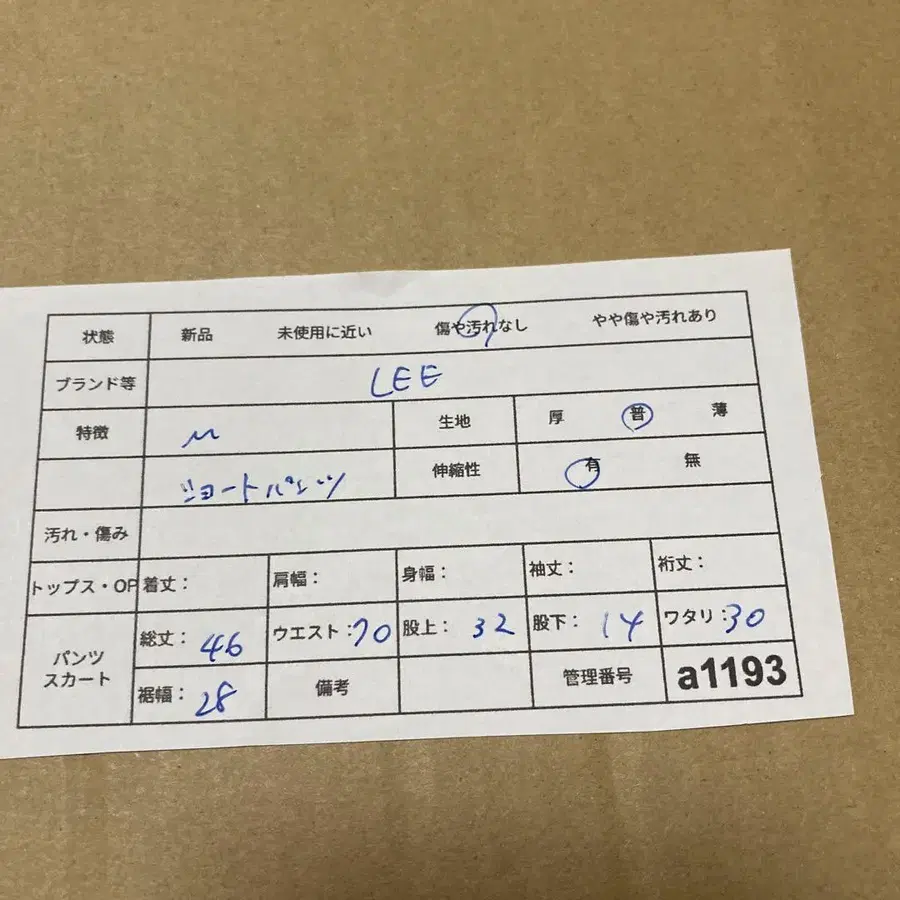 状態 新品 未使用に近い 傷や汚れなし やや傷や汚れあり
ブランド等 LEE
特徴 M 生地 厚 普 薄
ショートパンツ 伸縮性 有 無
汚れ・傷み
トップス・OP 着丈: 肩幅: 身幅: 袖丈: 裄丈:
パンツ スカート 総丈: 46 ウエスト:70 股上: 32 股下: 14 ワタリ:30
裾幅: 28 備考 管理番号 a1193